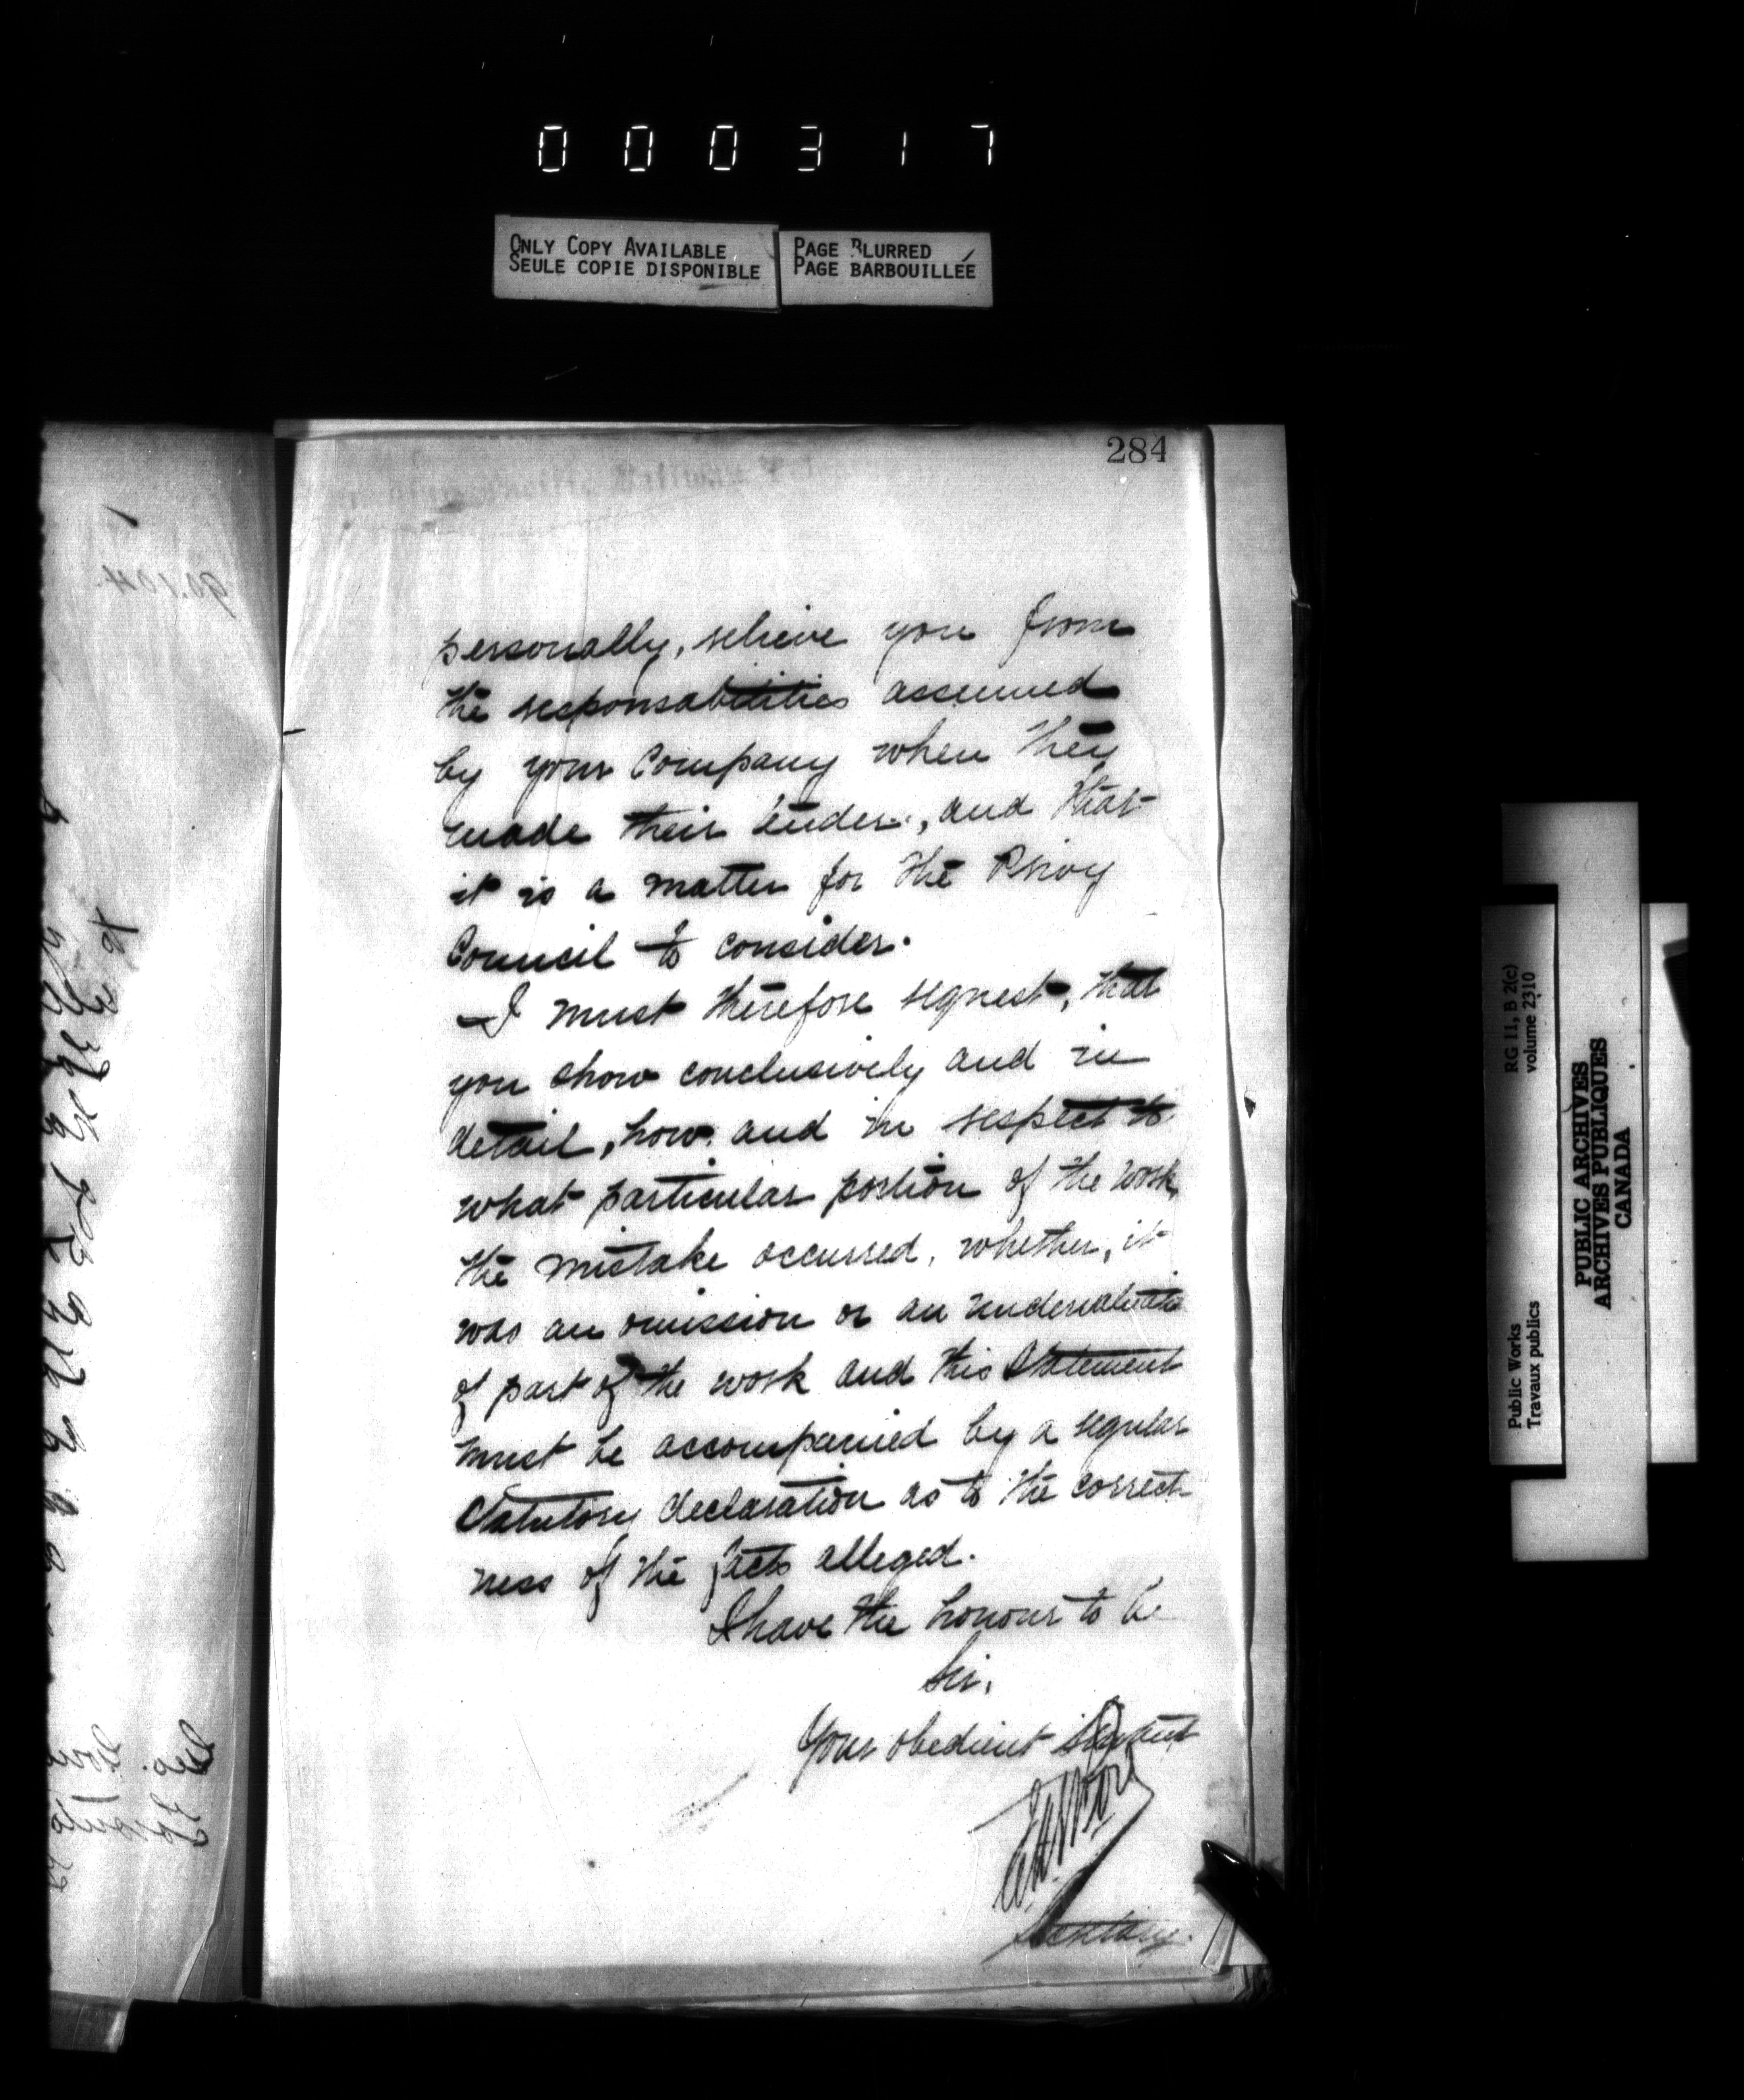 000317
ONLY COPY AVAILABLE
SEULE COPIE DISPONIBLE
PAGE BLURRED
PAGE BARBOUILLÉE
284
personally, relieve you from
the responsabilities assumed
by your Company when they
made their tender, and that
it is a matter for the Privy
Council to consider.
— I must therefore request, that
you show conclusively and in
detail, how, and in respect to
what particular portion of the work,
the mistake occurred, whether, it
was an omission or an undervaluation
of part of the work and this statement
must be accompanied by a regular
Statutory declaration as to the correct-
ness of the facts alleged.
I have the honour to be
Sir,
Your obedient servant
Secretary.
RG 11, B 2(c)
volume 2310
Public Works
Travaux publics
PUBLIC ARCHIVES
ARCHIVES PUBLIQUES
CANADA